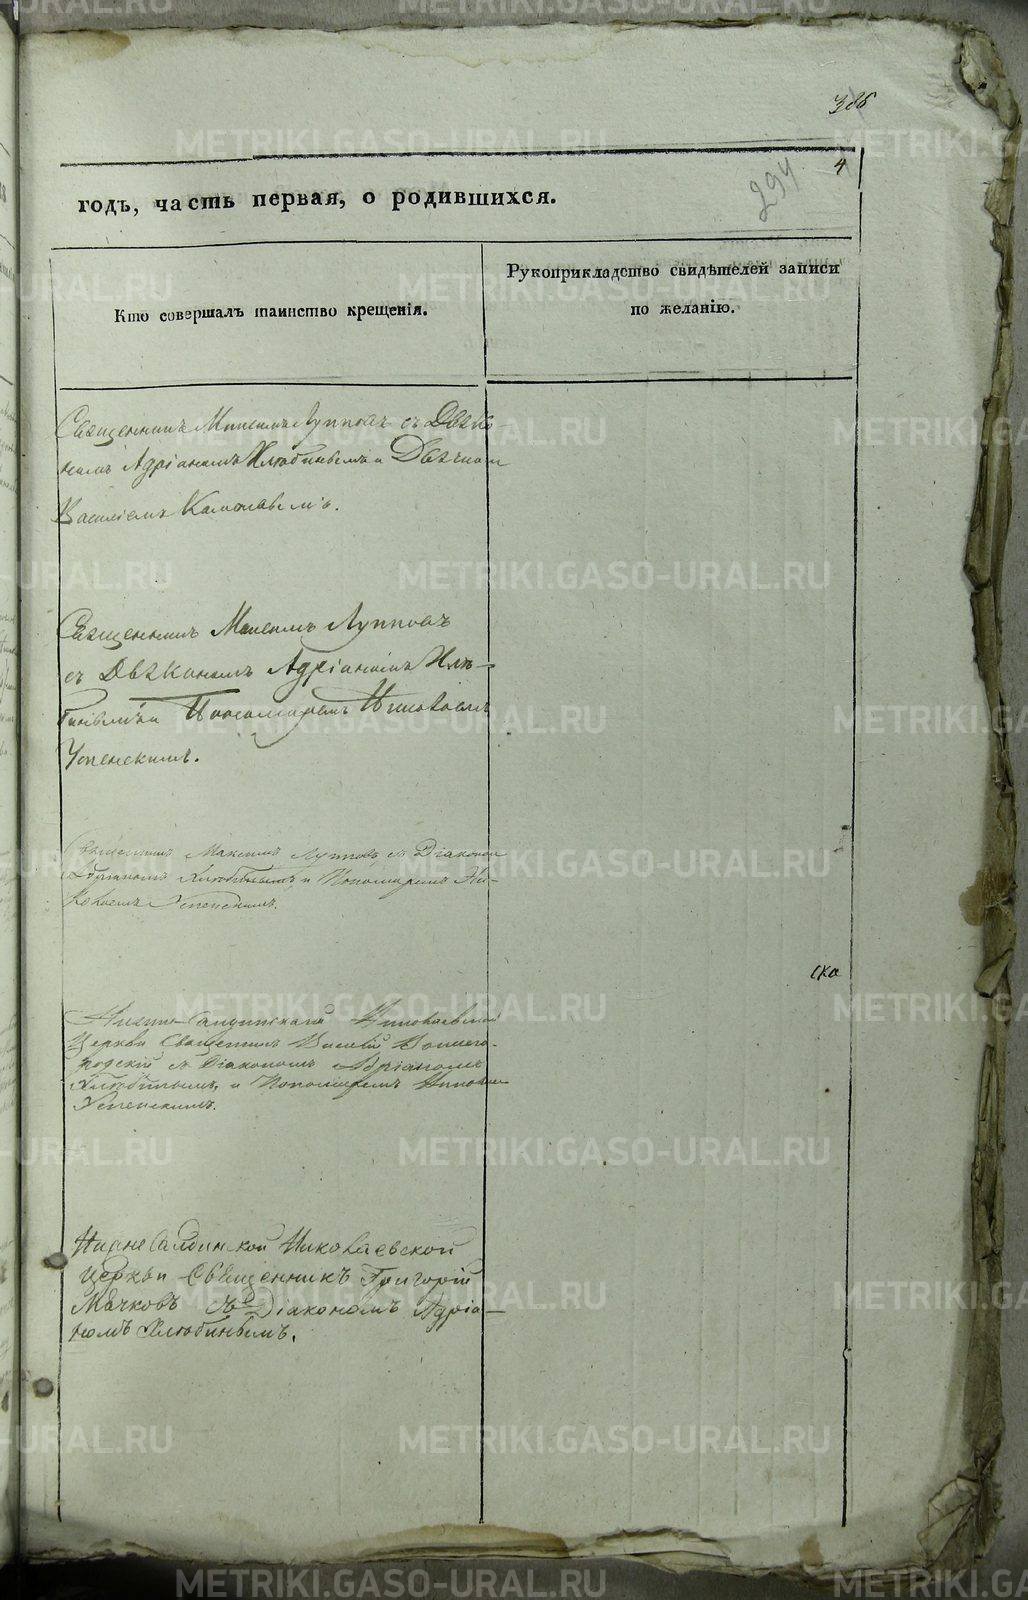 294
4
годъ, часть первая, о родившихся.
Кто совершалъ таинство крещенія.
Рукоприкладство свидѣтелей записи
по желанію.
Священникъ Максимъ Лупповъ съ Дьяко-
номъ Адріаномъ Хлюбинымъ и Дьячкомъ
Василіемъ
Священникъ Максимъ Лупповъ
съ Дьякономъ Адріаномъ Хлю-
бинымъ и Пономаремъ Николаемъ
Успенскимъ.
Священникъ Максимъ Лупповъ съ Діакономъ
Адріаномъ Хлюбинымъ и Пономаремъ Ни-
колаемъ Успенскимъ.
Нижне Салдинской Николаевской
Церкви Священникъ
съ Діакономъ Адріаномъ
Хлюбинымъ и Пономаремъ Николаемъ
Успенскимъ.
ска
Нижне Салдинской Николаевской
Церкви Священникъ Григорій
Мячковъ съ Діакономъ Адріа-
номъ Хлюбинымъ.
METRIKI.GASO-URAL.RU